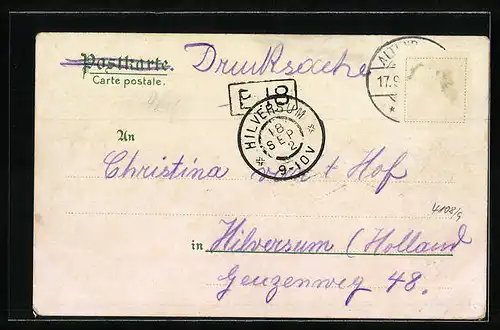 Postkarte. Drucksache
Carte postale.
ALTENB
17.9
F 18
HILVERSUM
18
SEP
2
9-10V
An
Christina van 't Hof
4108/9
in Hilversum (Holland
Geuzenweg 48.